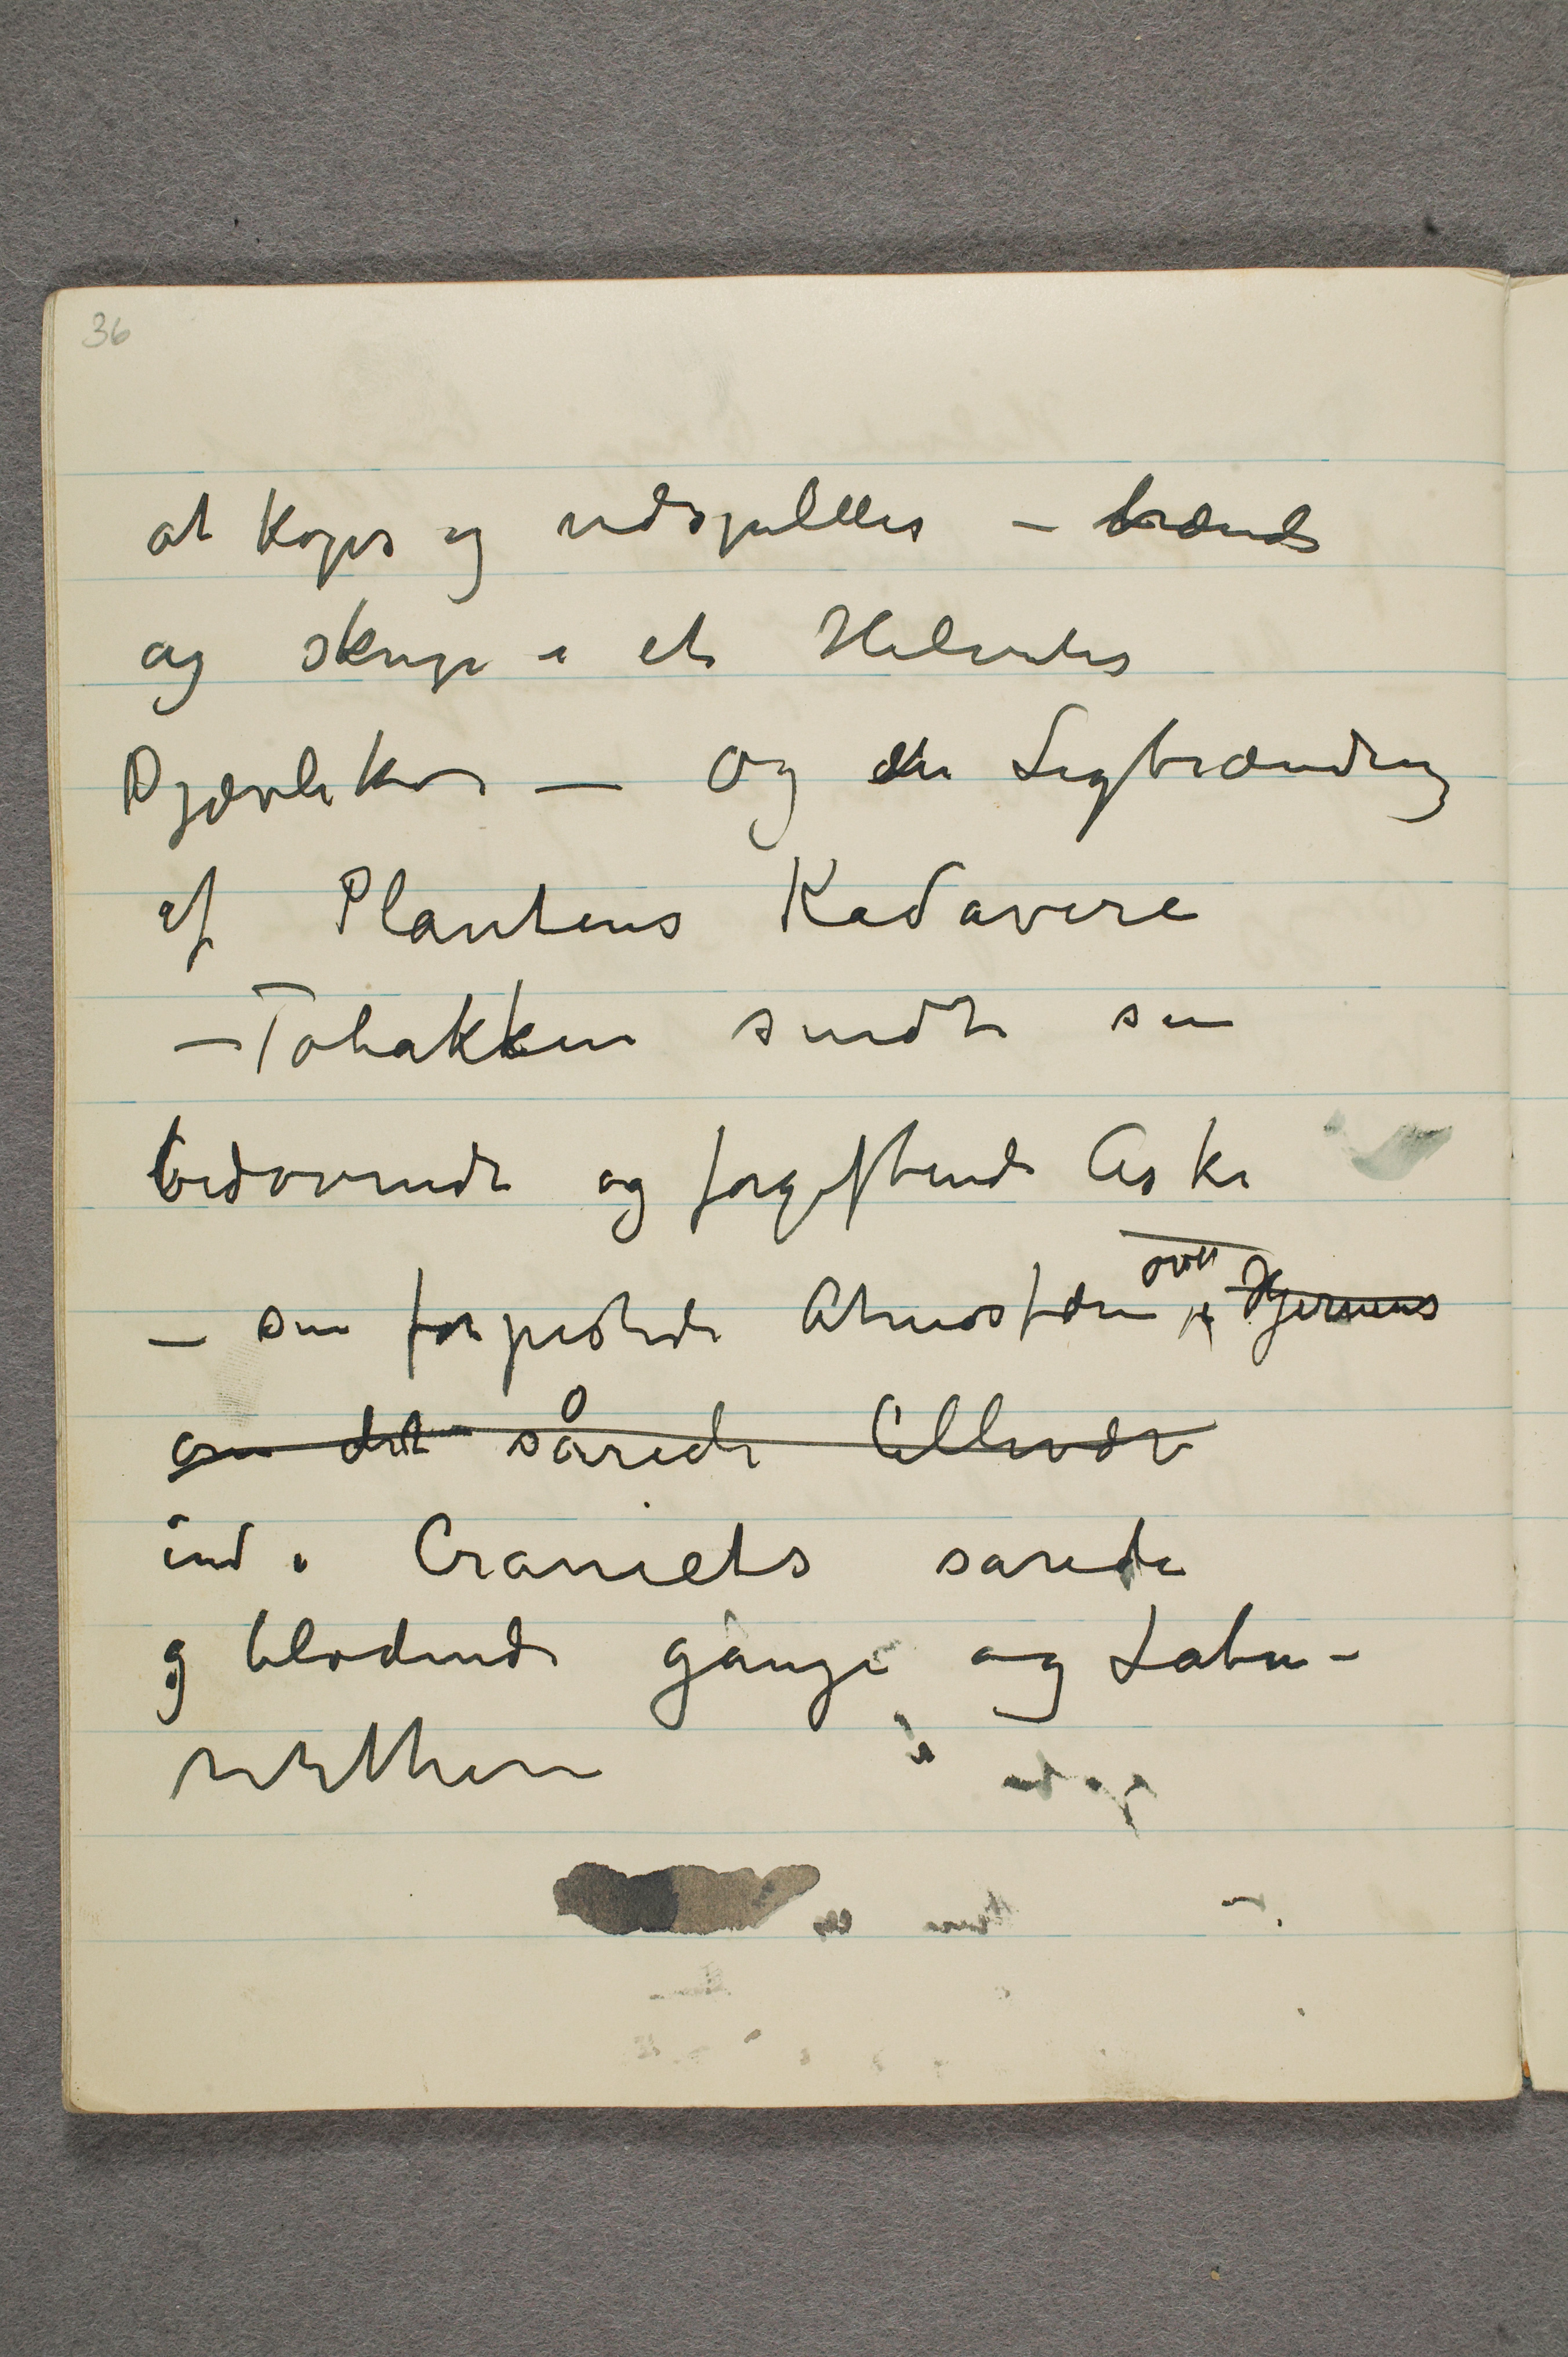 36
at koges og udspilles – brænde
og skrige i et Helvedes
Djævlekor – Og den Ligbrænding
af Plantens Kadavere
– Tobakken sendte sin
bedøvende og forgiftende Aske
– sin forpestede Atmosfære over Hjernens
om det sårede Cellevæv
ind i Craniets sarede
og blodende gange og Laby-